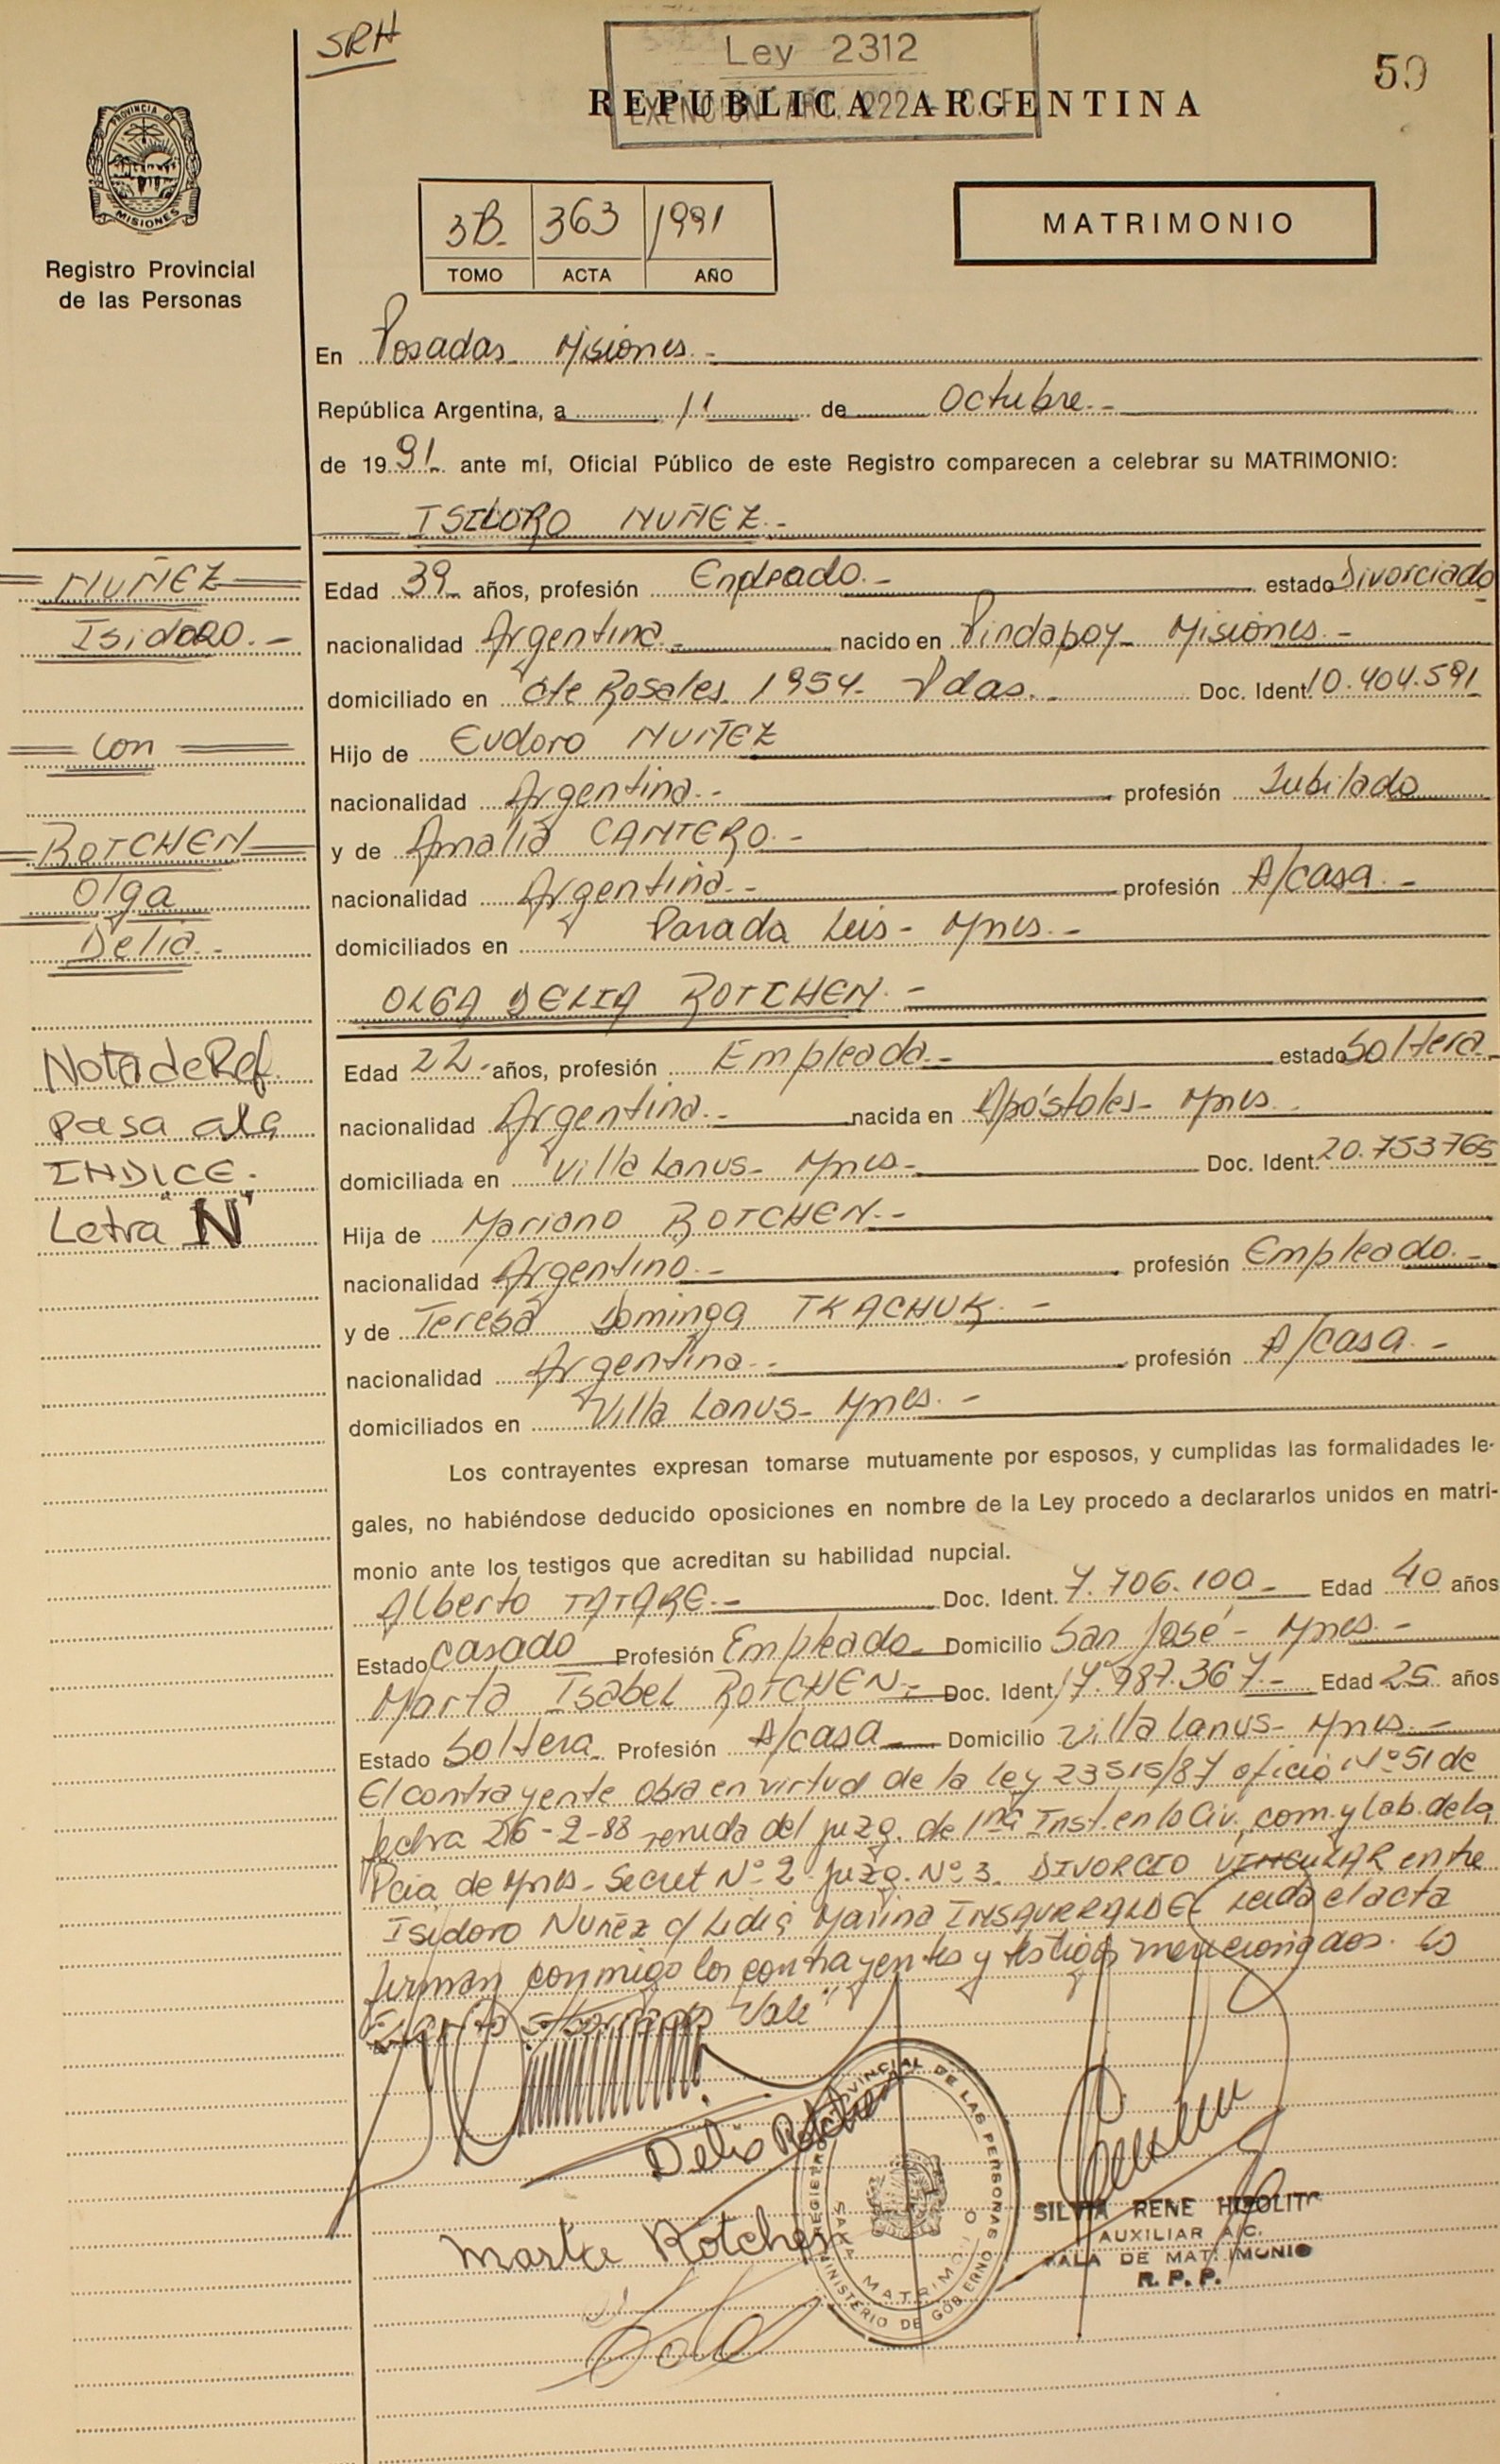 SRH
Ley 2312
EXENCION ART. 222 - C. F.
59
REPUBLICA ARGENTINA
PROVINCIA DE
MISIONES
Registro Provincial
de las Personas
3B. 363 1991
TOMO ACTA AÑO
MATRIMONIO
En Posadas Misiones.-
República Argentina, a 11 de Octubre.-
de 1991. ante mí, Oficial Público de este Registro comparecen a celebrar su MATRIMONIO:
ISIDORO NUÑEZ.-
NUÑEZ
Isidoro.-
con
ROTCHEN
Olga
Delia.-
Nota de Ref.
pasa a la
INDICE.
Letra "N"
Edad 39 años, profesión Empleado.- estado Divorciado
nacionalidad Argentina.- nacido en Pindapoy- Misiones.-
domiciliado en Cte Rosales 1954- Pdas.- Doc. Ident. 10.404.591
Hijo de Eudoro NUÑEZ
nacionalidad Argentina.- profesión Jubilado
y de Amalia CANTERO.-
nacionalidad Argentina.- profesión A/casa.-
domiciliados en Parada Leis- Mnes.-
OLGA DELIA ROTCHEN.-
Edad 22.- años, profesión Empleada.- estado Soltera.-
nacionalidad Argentina.- nacida en Apóstoles- Mnes.
domiciliada en Villa Lanus- Mnes.- Doc. Ident. 20.753765
Hija de Mariano ROTCHEN.-
nacionalidad Argentino.- profesión Empleado.-
y de Teresa Dominga TKACHUK.-
nacionalidad Argentina.- profesión A/casa.-
domiciliados en Villa Lanus- Mnes.-
Los contrayentes expresan tomarse mutuamente por esposos, y cumplidas las formalidades le-
gales, no habiéndose deducido oposiciones en nombre de la Ley procedo a declararlos unidos en matri-
monio ante los testigos que acreditan su habilidad nupcial.
Alberto TATARE.- Doc. Ident. 7.706.100- Edad 40 años
Estado casado Profesión Empleado- Domicilio San José- Mnes.-
Marta Isabel ROTCHEN- Doc. Ident. 17.987.367.- Edad 25 años
Estado Soltera. Profesión A/casa Domicilio Villa Lanus- Mnes.-
El contrayente obra en virtud de la ley 23515/87 oficio Nº 51 de
fecha 26-2-88 del juzg. de 1ra Inst. en lo Civ, com. y lab. de la
Pcia de Mnes- Secret Nº 2 juzg. Nº 3. DIVORCIO VINCULAR entre
Isidoro Nuñez c/ Lidia Marina INSAURRALDE Leida el acta
firman conmigo los contrayentes y testigos mencionados. Lo
"Vale"
Delia Rotchen
Marta Rotchen
REGISTRO PROVINCIAL DE LAS PERSONAS
MINISTERIO DE GOBIERNO
SALA MATRIMONIO
SILVIA RENE HIPOLITO
AUXILIAR A/C.
SALA DE MATRIMONIO
R. P. P.